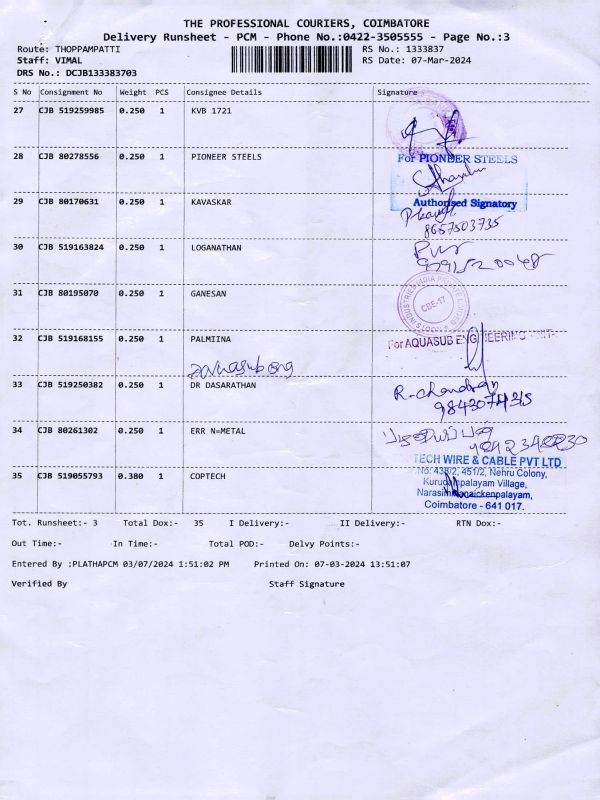 THE PROFESSIONAL COURIERS, COIMBATORE
Delivery Runsheet - PCM - Phone No.:0422-3505555 - Page No.:3
Route: THOPPAMPATTI
RS No.: 1333837
Staff: VIMAL
RS Date: 07-Mar-2024
DRS No.: DCJB133383703
S No Consignment No Weight PCS Consignee Details Signature
27 CJB 519259985 0.250 1 KVB 1721
28 CJB 80278556 0.250 1 PIONEER STEELS
For PIONEER STEELS
Authorised Signatory
29 CJB 80170631 0.250 1 KAVASKAR
8657503735
30 CJB 519163824 0.250 1 LOGANATHAN
31 CJB 80195070 0.250 1 GANESAN
CBE-17
32 CJB 519168155 0.250 1 PALMIINA
For AQUASUB ENGINEERING
aquasub eng
33 CJB 519250382 0.250 1 DR DASARATHAN
R. chandran
34 CJB 80261302 0.250 1 ERR N=METAL
35 CJB 519055793 0.380 1 COPTECH
TECH WIRE & CABLE PVT LTD
No: 438/2, 451/2, Nehru Colony,
Kurudampalayam Village,
Narasimmanaickenpalayam,
Coimbatore - 641 017.
Tot. Runsheet:- 3 Total Dox:- 35 I Delivery:- II Delivery:- RTN Dox:-
Out Time:- In Time:- Total POD:- Delvy Points:-
Entered By :PLATHAPCM 03/07/2024 1:51:02 PM Printed On: 07-03-2024 13:51:07
Verified By Staff Signature